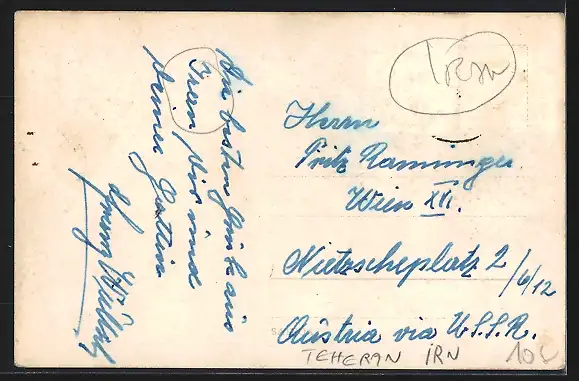 Die besten Grüße aus
Iran Dir und
Deiner Gattin
Iran
Herrn
Fritz Ramminger
Wien XVI.
Nietzscheplatz 2/6/12
Austria via U.S.S.R.
TEHERAN IRN 10€